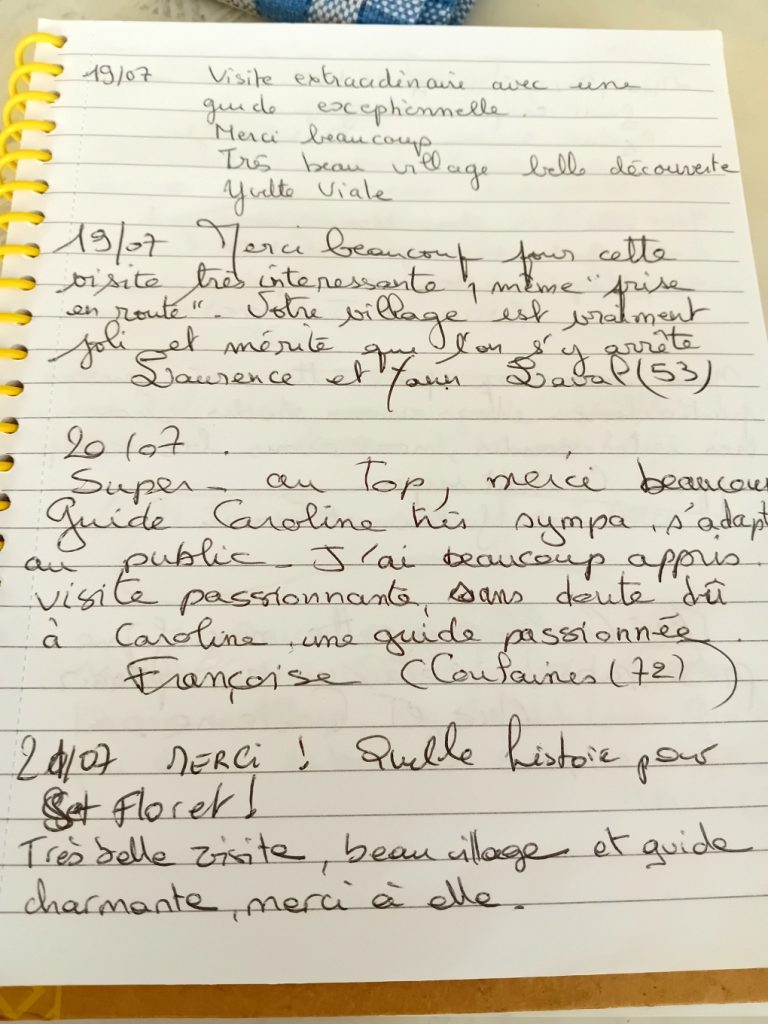 19/07 Visite extraordinaire avec une
guide exceptionnelle.
Merci beaucoup
Très beau village belle découverte
Yvette Viale
19/07 Merci beaucoup pour cette
visite très interessante, même "prise
en route". Votre village est vraiment
joli et mérite que l'on s'y arrête
Laurence et Yann Laval (53)
20/07.
Super - au Top, merci beaucou
Guide Caroline très sympa, s'adapt
au public - J'ai beaucoup appris.
visite passionnante, sans doute dû
à Caroline, une guide passionnée.
Françoise (Coulaines (72))
21/07 MERCI ! Quelle histoire pour
St Floret !
Très belle visite, beau village et guide
charmante, merci à elle.